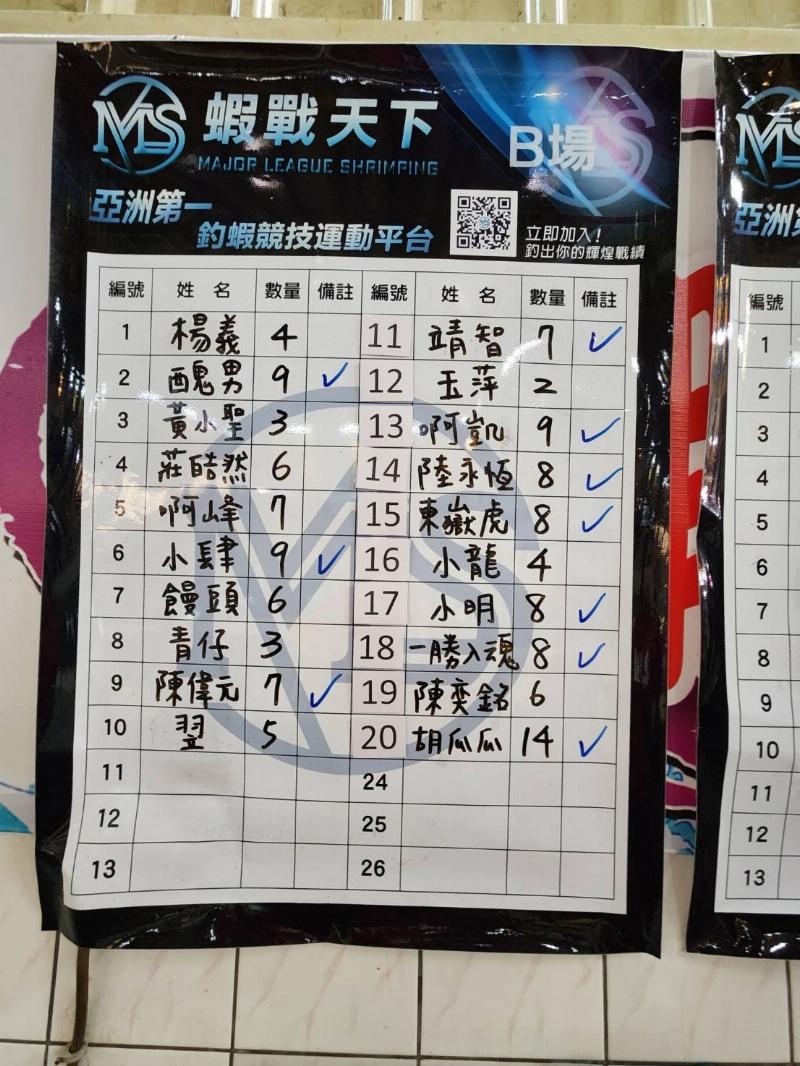 MS 蝦戰天下
MAJOR LEAGUE SHRIMPING
B場
亞洲第一
釣蝦競技運動平台
立即加入!
釣出你的輝煌戰績
編號 姓名 數量 備註 編號 姓名 數量 備註
1 楊義 4 11 靖智 7 ✓
2 醜男 9 ✓ 12 玉萍 2
3 黃小聖 3 13 啊凱 9 ✓
4 莊皓然 6 14 陸永恆 8 ✓
5 啊峰 7 15 東嶽虎 8 ✓
6 小肆 9 ✓ 16 小龍 4
7 饅頭 6 17 小明 8 ✓
8 青仔 3 18 一勝入魂 8 ✓
9 陳偉元 7 ✓ 19 陳奕銘 6
10 翌 5 20 胡瓜瓜 14 ✓
11 24
12 25
13 26
MS
亞洲
編號
1
2
3
4
5
6
7
8
9
10
11
12
13